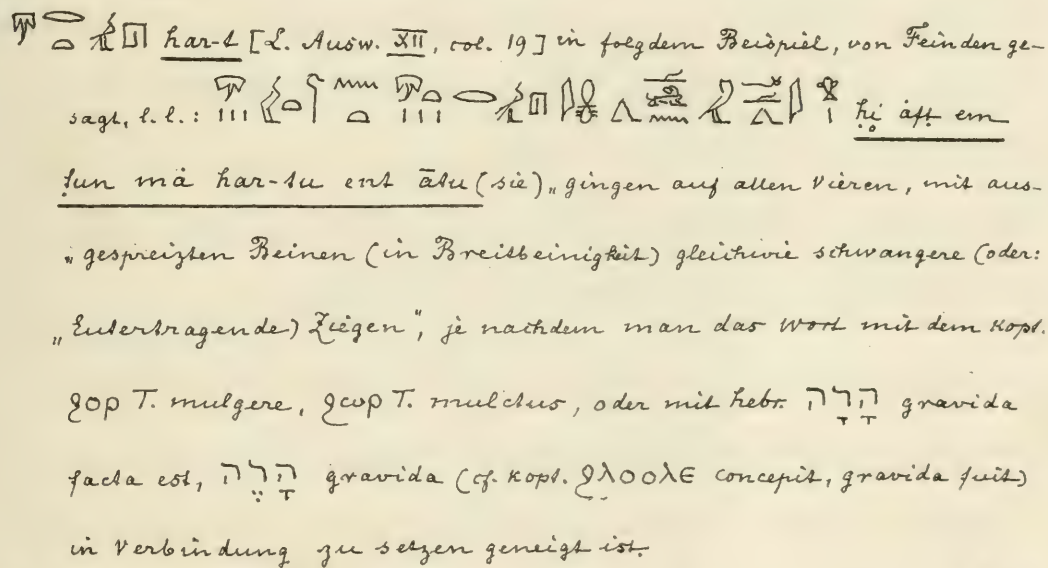 har-t [L. Ausw. XII, col. 19] in folgdem Beispiel, von Feinden ge-
sagt, l. l.: ḥi áft em
ṭun má har-tu ent ātu (sie) „gingen auf allen Vieren, mit aus-
„gespreizten Beinen (in Breitbeinigkeit) gleichwie schwangere (oder:
„Eutertragende) Ziegen“, je nachdem man das Wort mit dem kopt.
ϩⲟⲣ T. mulgere, ϩⲱⲣ T. mulctus, oder mit hebr. הָרָה gravida
facta est, הָרֶה gravida (cf. kopt. ϩⲗⲟⲟⲗⲉ concepit, gravida fuit)
in Verbindung zu setzen geneigt ist.